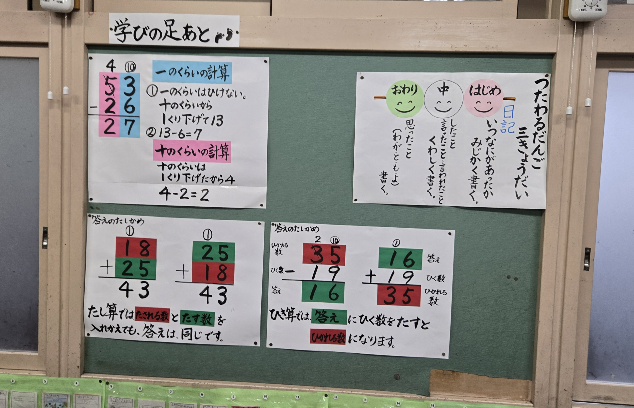 学びの足あと
4 ⑩
53
-26
27
一のくらいの計算
①一のくらいはひけない。
十のくらいから
1くり下げて13
②13-6=7
十のくらいの計算
十のくらいは
1くり下げたから4
4-2=2
つたわるだんご
三きょうだい
日記
はじめ
いつなにがあったか
みじかく書く。
中
したこと
言ったこと 言われたこと
くわしく書く。
おわり
思ったこと
(わがともよ)
書く。
答えのたしかめ
①
18
+25
43
①
25
+18
43
たし算では、たされる数とたす数を
入れかえても、答えは、同じです。
答えのたしかめ
2 ⑩
ひかれる数 35
ひく数 -19
答え 16
①
16 答え
+19 ひく数
35 ひかれる数
ひき算では、答えにひく数をたすと
ひかれる数になります。